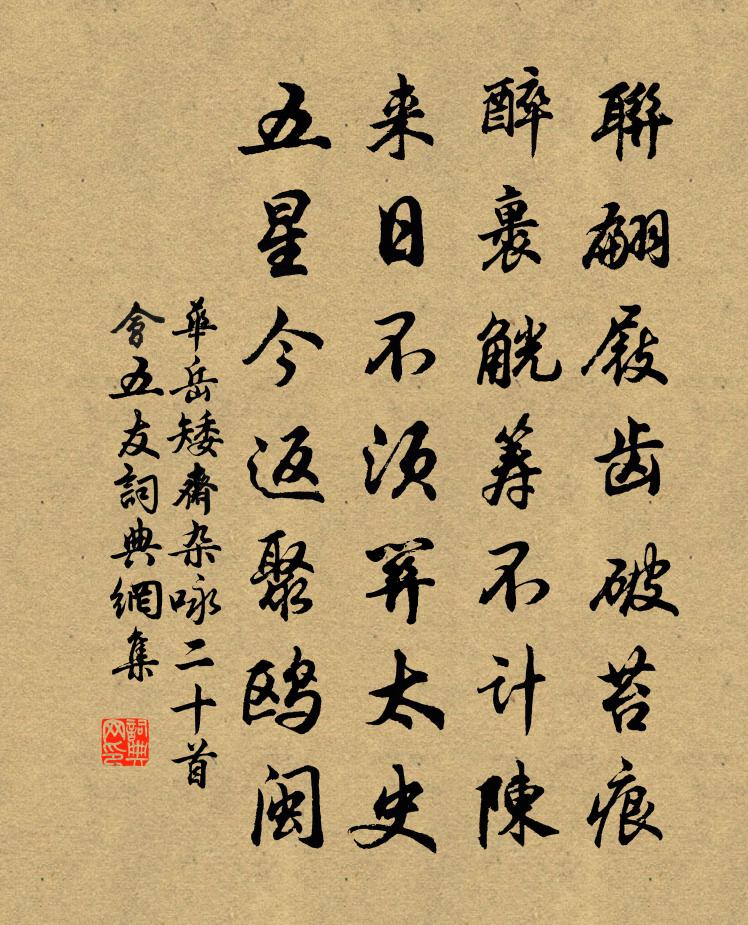 聯翩屐齿破苔痕
醉裏觥筹不計陳
来日不須筭太史
五星今返聚鸥闽
華岳矮齋杂咏二十首
會五友詞典網集
詞典网印